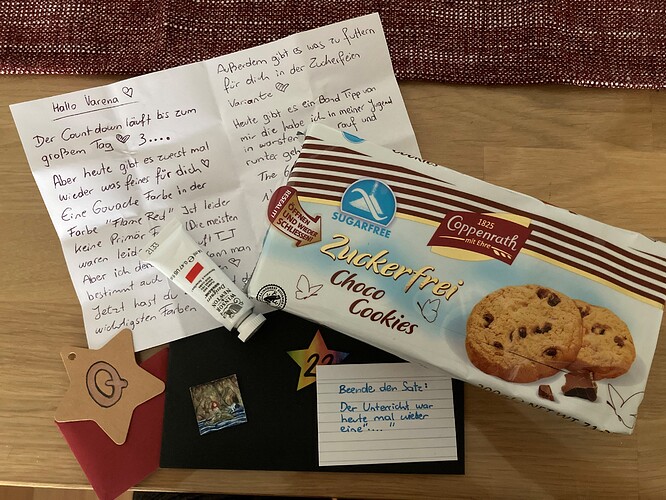 Hallo Varena ♡
Der Countdown läuft bis zum
großem Tag ♥ 3....
Aber heute gibt es zuerst mal
wieder was feines für dich ♡
Eine Gouache Farbe in der
Farbe "Flame Red" Ist leider
keine Primär (Die meisten
waren leid
Aber ich den kann man
bestimmt auch
Jetzt hast du
wichtigsten Farben
Außerdem gibt es was zu futtern
für dich in der Zuckerfeien
Variante ♡
Heute gibt es ein Band Tipp von
mir die habe ich in meiner Jugend
rauf und
runter
The
WINSOR
NEWTON
1825
Coppenrath
mit Ehre
SUGARFREE
RESEALIT!
ÖFFNEN
UND WIEDER
SCHLIESSEN!
Zuckerfrei
Choco
Cookies
Beende den Satz:
Der Unterricht war
heute mal wieder
eine "....."